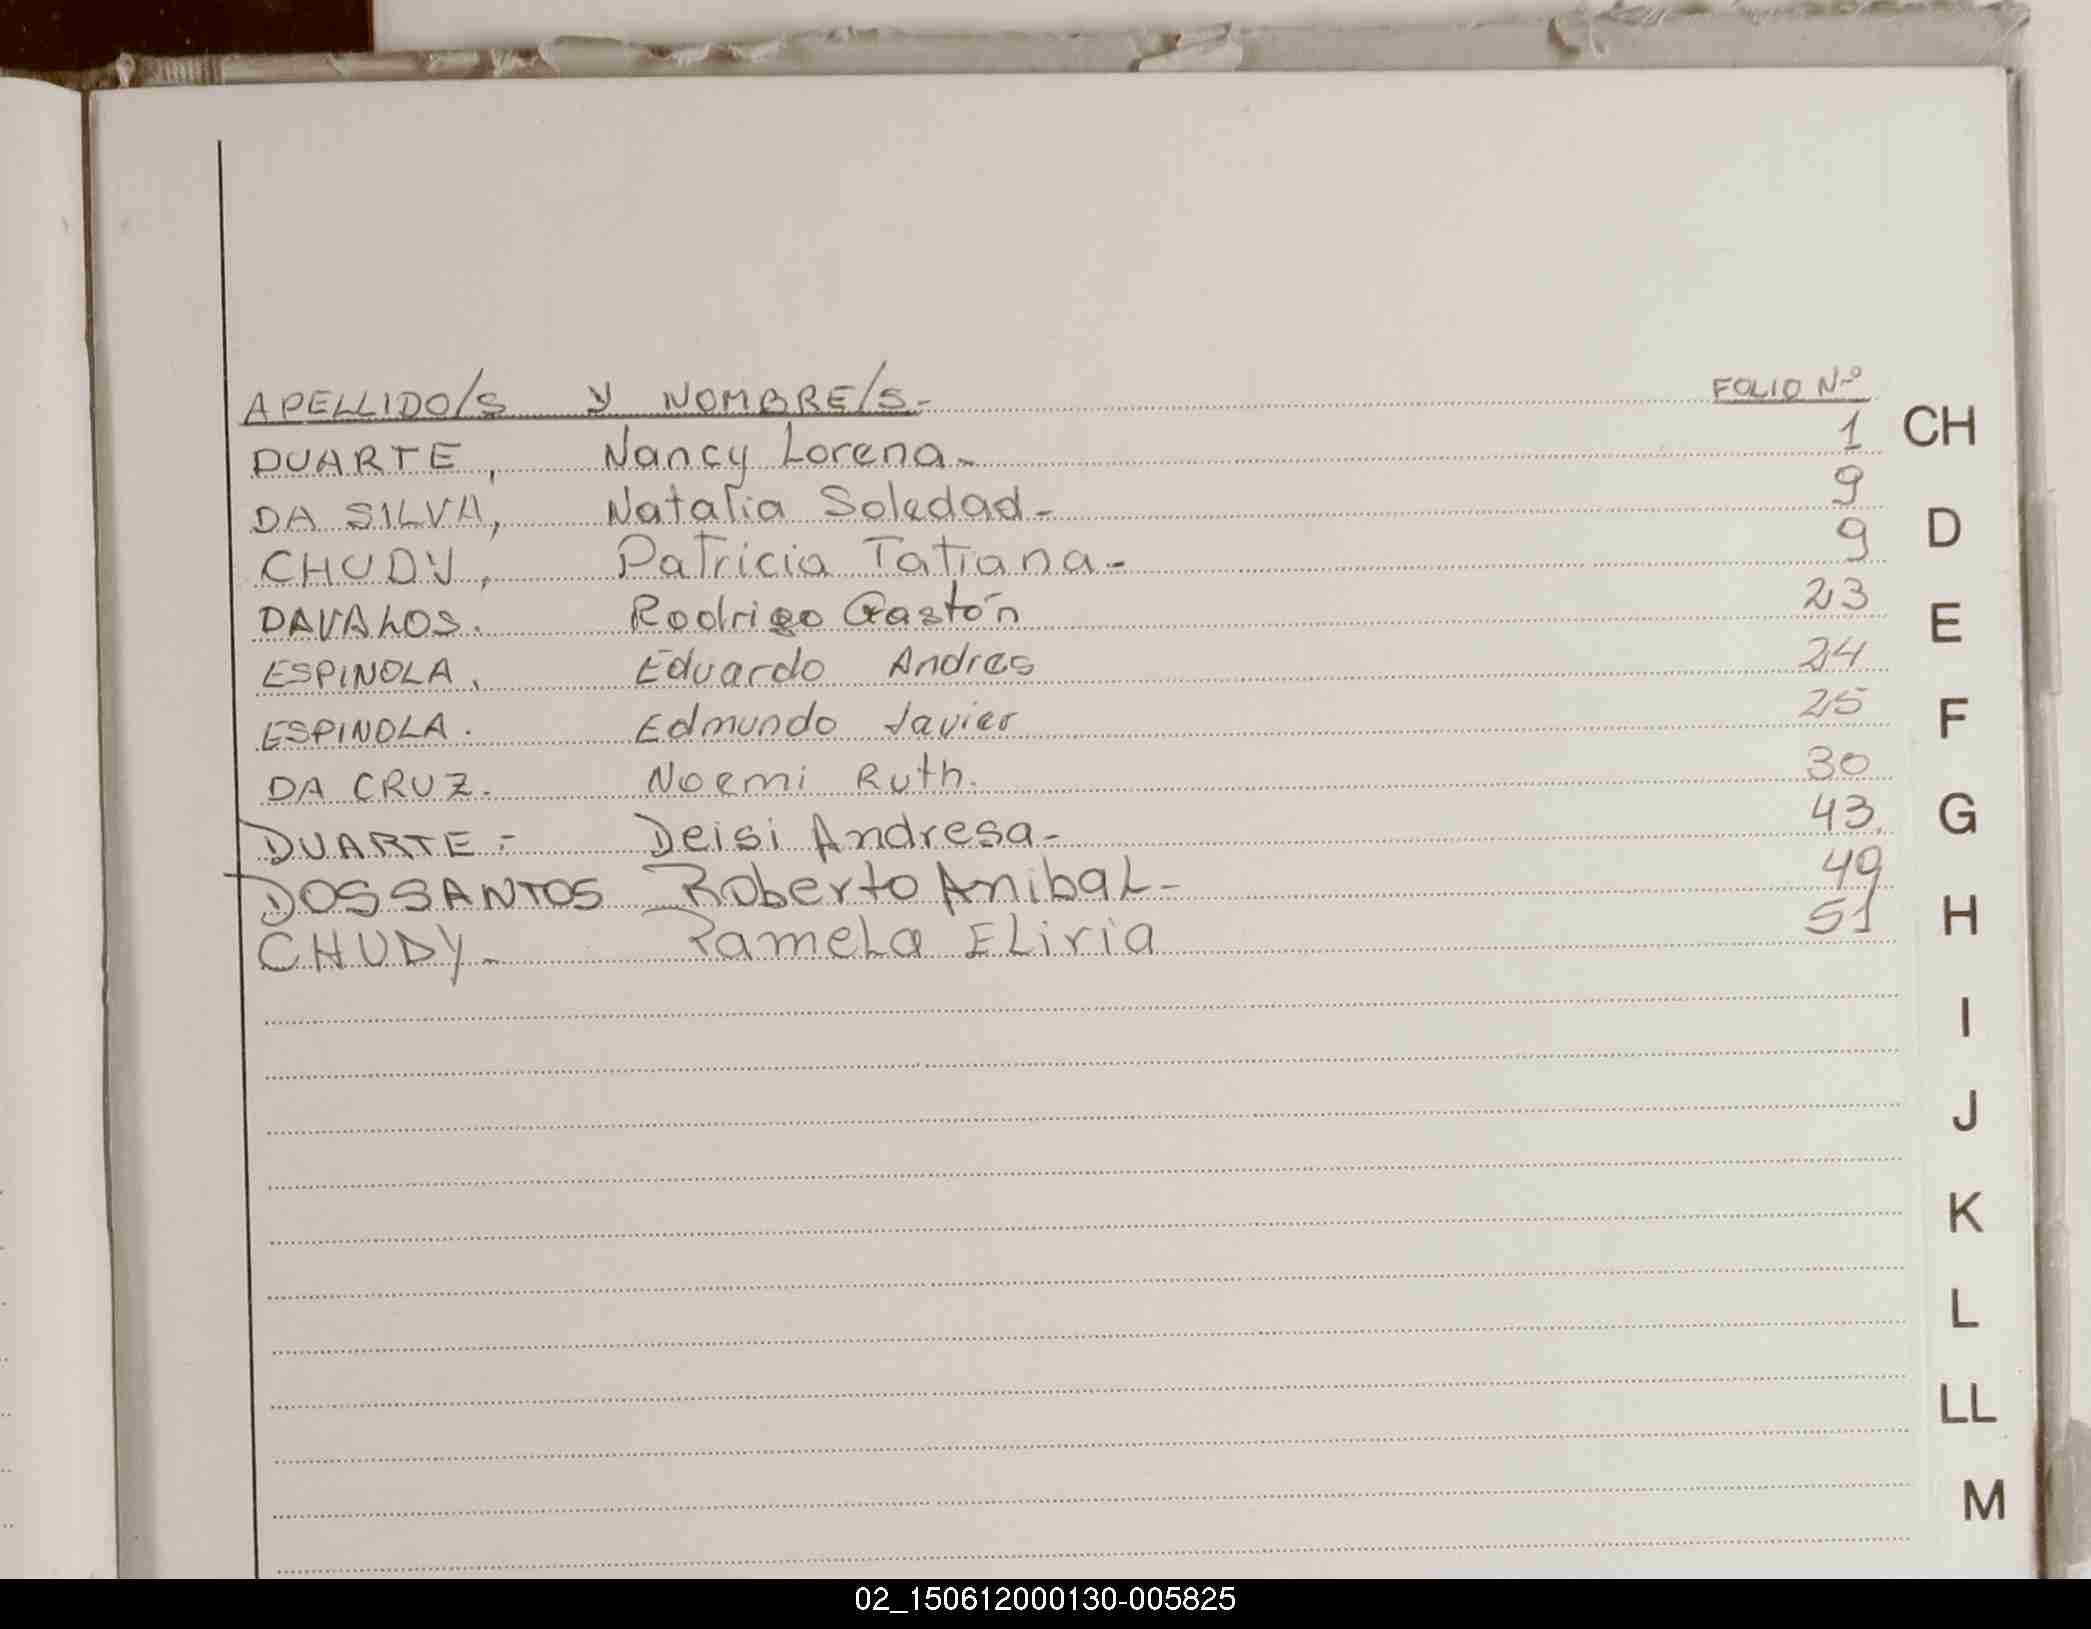 APELLIDO/S Y NOMBRE/S.- FOLIO Nº
DUARTE, Nancy Lorena.- 1
DA SILVA, Natalia Soledad.- 9
CHUDY, Patricia Tatiana.- 9
DAVALOS. Rodrigo Gastón 23
ESPINOLA. Eduardo Andres 24
ESPINOLA. Edmundo Javier 25
DA CRUZ. Noemi Ruth. 30
DUARTE.- Deisi Andresa- 43.
DOS SANTOS Roberto AnibaL- 49
CHUDY- PameLa ELiria 51
CH
D
E
F
G
H
I
J
K
L
LL
M
02_150612000130-005825